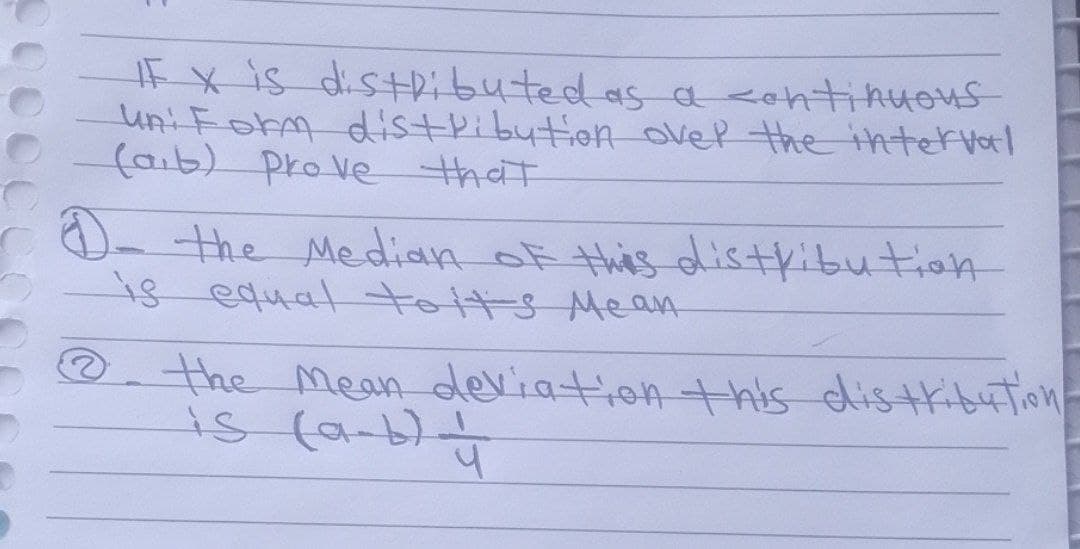 IF x is distributed as a continuous
uniForm distribution over the interval
(a,b) prove that
①- the Median oF this distribution
is equal to its Mean
②- the Mean deviation this distribution
is (a-b) 1/4